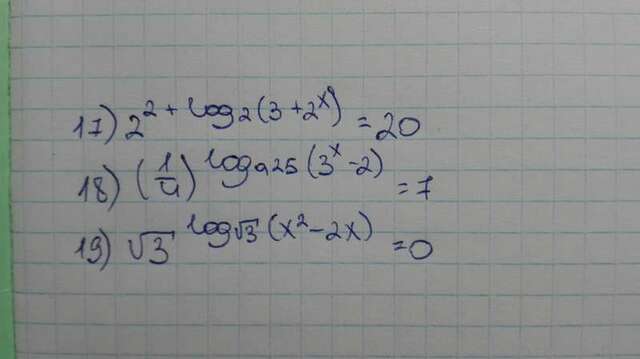 17) 2^{2 + log_2(3 + 2^x)} = 20
18) (1/4)^{log_{0,25}(3^x - 2)} = 7
19) √3^{log_{√3}(x^2 - 2x)} = 0